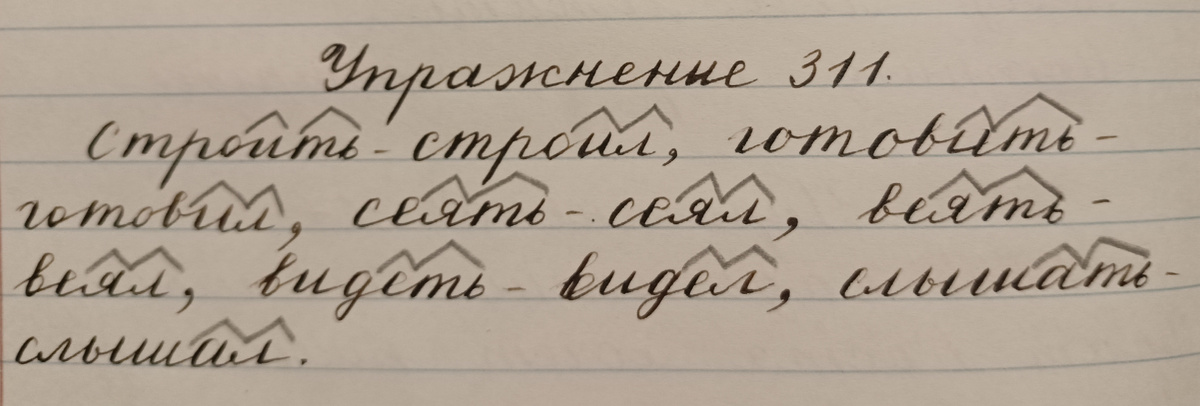 Упражнение 311.
Строить - строил, готовить -
готовил, сеять - сеял, веять -
веял, видеть - видел, слышать -
слышал.